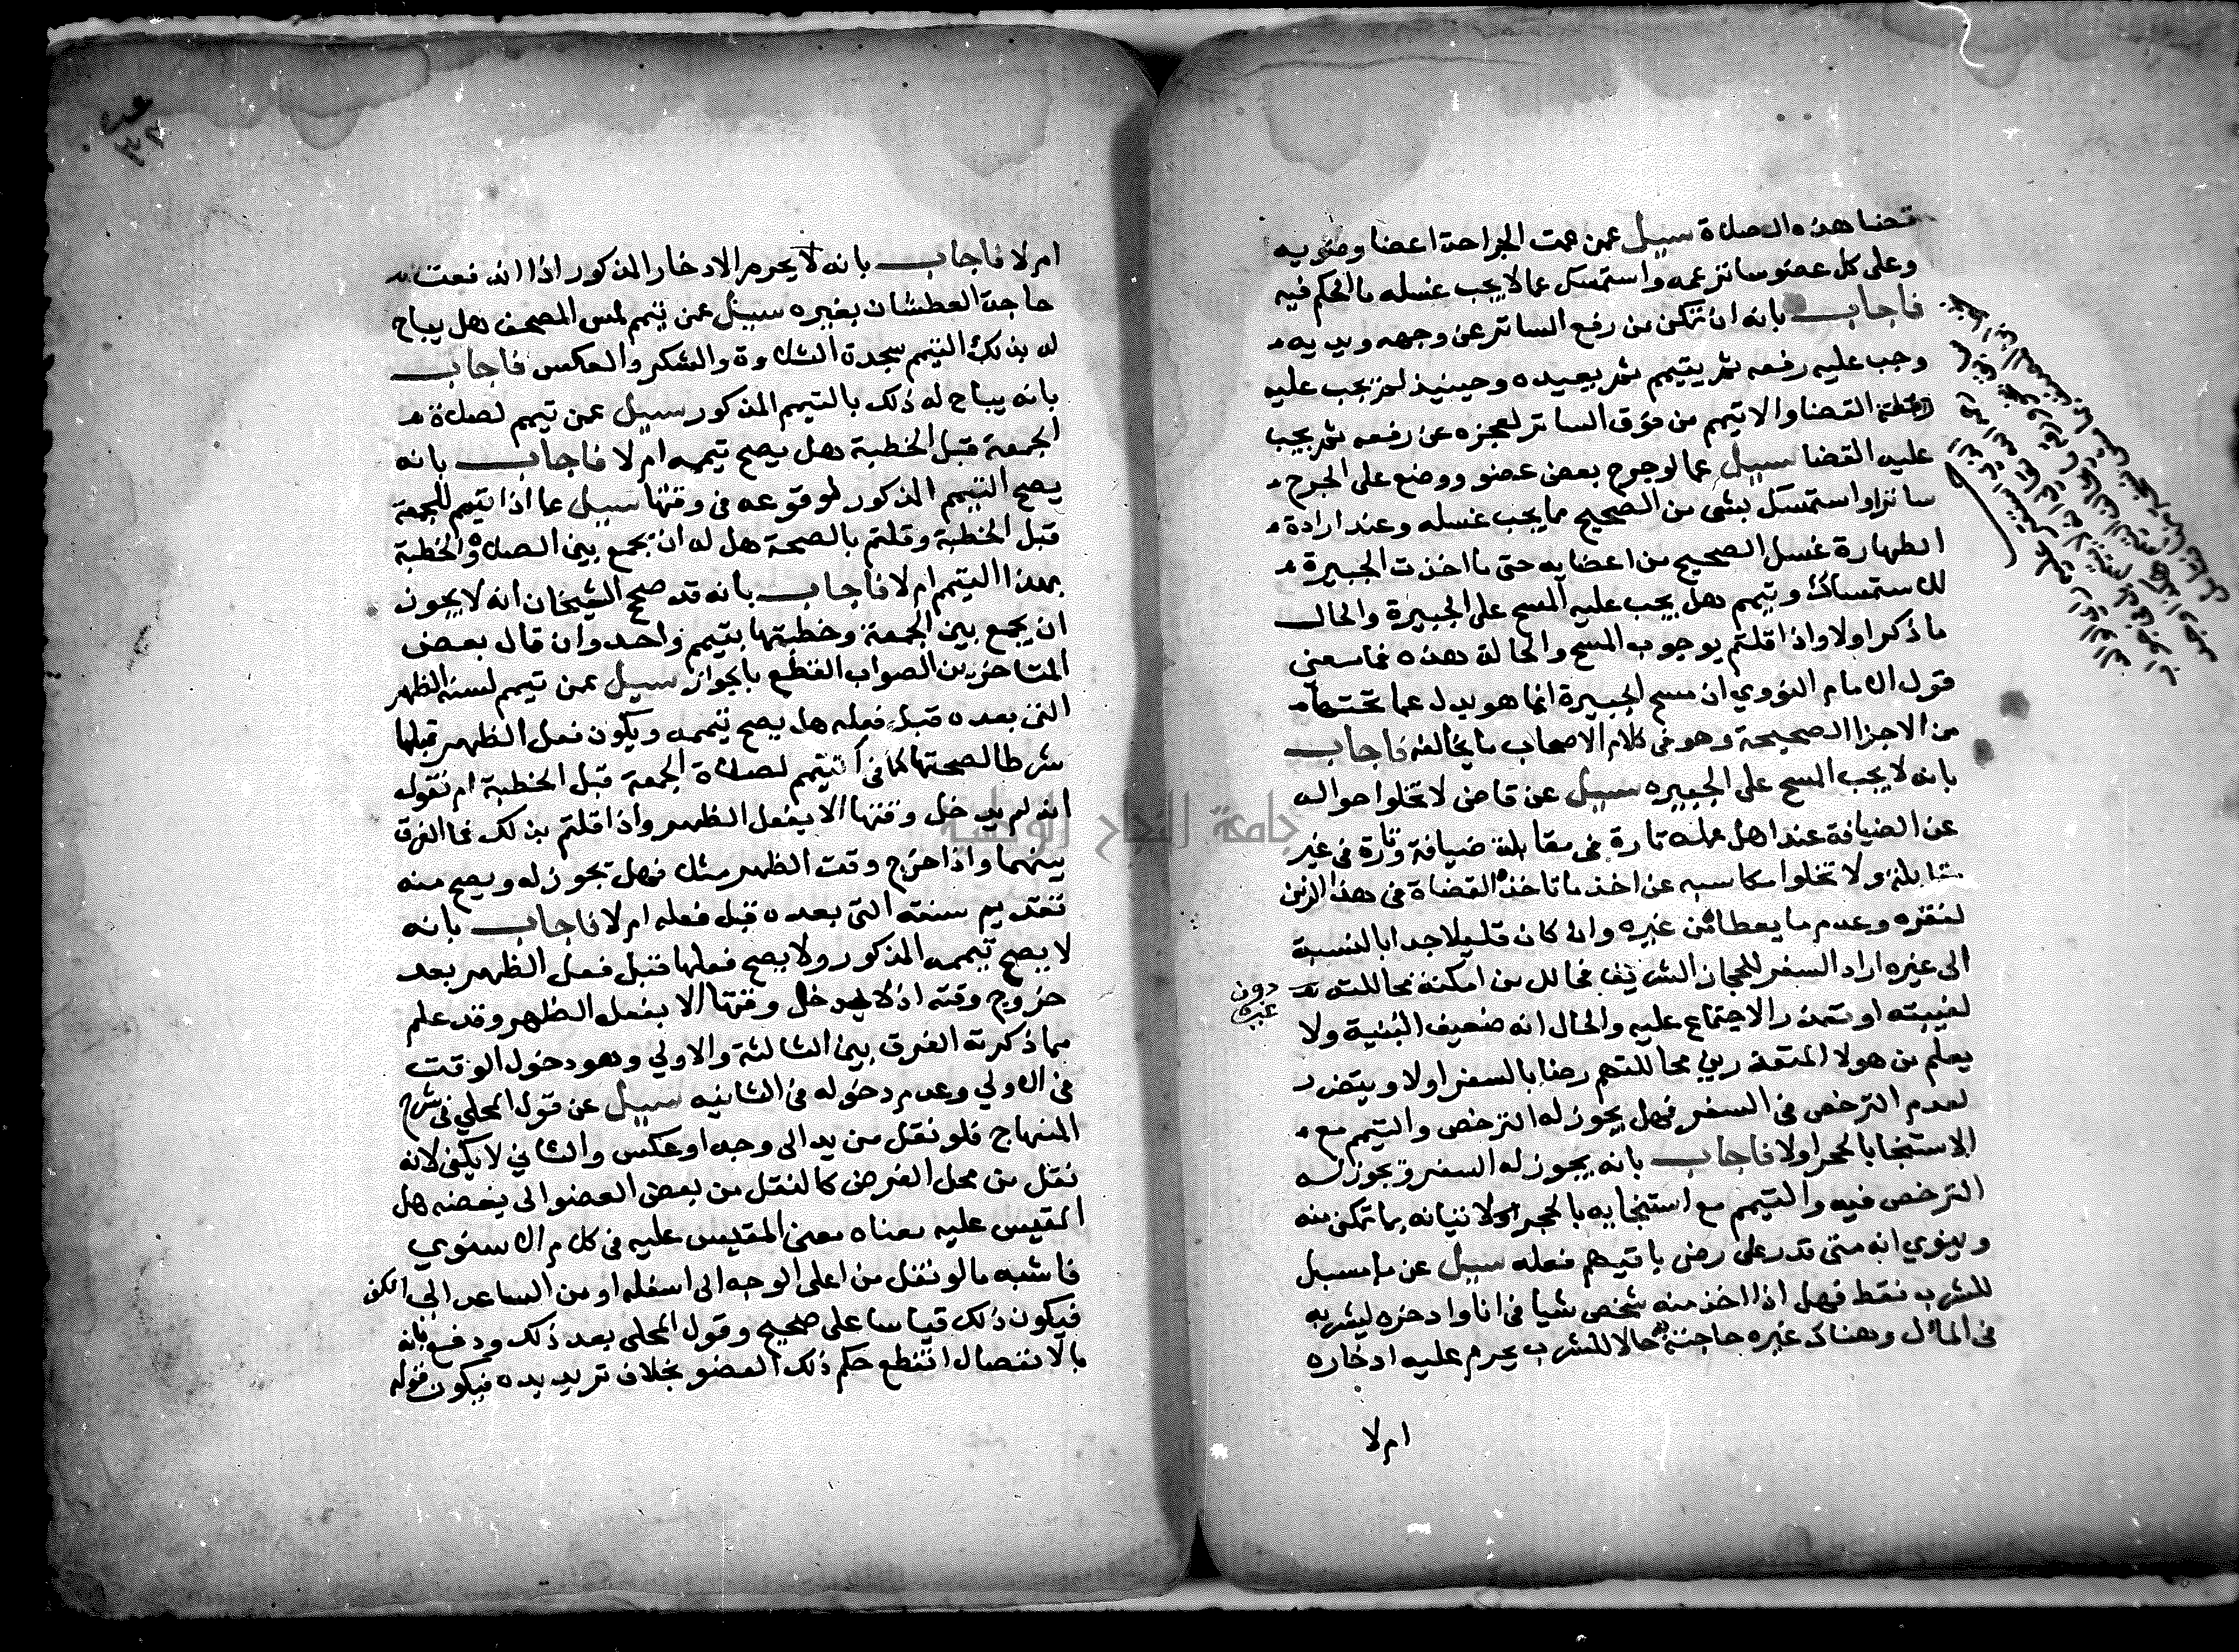 قضا هذه الصلاة سيل عمن عمت الجراحة اعضا وضويه
وعلى كل عضو ساتر عمه واستمسك عما لا يجب غسله ما الحكم فيه
فاجاب بانه ان تمكن من رفع الساتر عن وجهه ويديه
وجب عليه رفعه ثم يتيمم ثم يعيده وحينيذ لم يجب عليه
القضا والا تيمم من فوق الساتر لعجزه عن رفعه ثم يجب
عليه القضا سيل عما لو جرح بعض عضو ووضع على الجرح
ساترا واستمسك بشى من الصحيح مما يجب غسله وعند ارادة
الطهارة غسل الصحيح من اعضايه حتى ما اخذت الجبيرة
للاستمساك وتيمم هل يجب عليه المسح على الجبيرة والحال
ما ذكر اولا واذا قلتم بوجوب المسح والحالة هذه فما معنى
قول الامام النووي ان مسح الجبيرة انما هو بدل عما تحتها
من الاجزا الصحيحة وهو في كلام الاصحاب ما يخالفه فاجاب
بانه لا يجب المسح على الجبيره سيل عن قاض لا تخلوا حواله
عن الضيافة عند اهل عمله تارة في مقابلة ضيافة وتارة في غير
مقابلة ولا تخلوا مكاسبه عن اخذ ما تاخذه القضاة في هذا الزمن
لفقره وعدم ما يعطاه من غيره وان كان قليلا جدا بالنسبة
الى غيره اراد السفر للحجاز الشريف فحالل من امكنه محاللته
دون غيره
لغيبته او تعذر الاجتماع عليه والحال انه ضعيف البنية ولا
يعلم من هولا المتعذرين محاللتهم رضا بالسفر اولا ويتضرر
لعدم الترخص في السفر فهل يجوز له الترخص والتيمم مع
الاستنجا بالحجر اولا فاجاب بانه يجوز له السفر ويجوز له
الترخص فيه والتيمم مع استنجايه بالحجر اولا تيانه بما تمكن منه
وينوي انه متى قدر على رضى باقيهم فعله سيل عن ما مسبل
للشرب فقط فهل اذا اخذ منه شخص شيا في انا وادخره ليشربه
في المال وهناك غيره حاجته حالا للشرب يحرم عليه ادخاره
ام لا
ام لا فاجاب بانه لا يحرم الادخار المذكور اذا اندفعت
حاجة العطشان بغيره سيل عمن تيمم لمس المصحف هل يباح
له بذلك التيمم سجدة التلاوة والشكر والعكس فاجاب
بانه يباح له ذلك بالتيمم المذكور سيل عمن تيمم لصلاة
الجمعة قبل الخطبة هل يصح تيممه ام لا فاجاب بانه
يصح التيمم المذكور لوقوعه في وقتها سيل عما اذا تيمم للجمعة
قبل الخطبة وقلتم بالصحة هل له ان يجمع بين الصلاة والخطبة
بهذا التيمم ام لا فاجاب بانه قد صحح الشيخان انه لا يجوز
ان يجمع بين الجمعة وخطبتها بتيمم واحد وان قال بعض
المتاخرين الصواب القطع بالجواز سيل عمن تيمم لسنة الظهر
التي بعده قبل فعله هل يصح تيممه ويكون فعل الظهر قبلها
شرطا لصحتها كما في التيمم لصلاة الجمعة قبل الخطبة ام نقول
انه لم يدخل وقتها الا بفعل الظهر واذا قلتم بذلك فما الفرق
بينهما واذا خرج وقت الظهر مثلا فهل تجوز له ويصح منه
تقديم سنته التي بعده قبل فعله ام لا فاجاب بانه
لا يصح تيممه المذكور ولا يصح فعلها قبل فعل الظهر بعد
خروج وقته اذ لا يدخل وقتها الا بفعل الظهر وقد علم
مما ذكرته الفرق بين الثالثة والاولي وهو دخول الوقت
في الاولي وعدم دخوله في الثانيه سيل عن قول المحلي في شرح
المنهاج فلو نقل من يد الى وجه او عكس والثاني لا يكفي لانه
نقل من محل الفرض كالنقل من بعض العضو الى بعضه هل
المقيس عليه معناه معنى المقيس عليه في كلام الاسنوي
فاشبه ما لو نقل من اعلى الوجه الى اسفله او من الساعد الى الكف
فيكون ذلك قياسا على صحيح وقول المحلي بعد ذلك ودفع بانه
بالانفصال انقطع حكم ذلك العضو بخلاف ترديده فيكون قوله
جامعة النجاح الوطنية